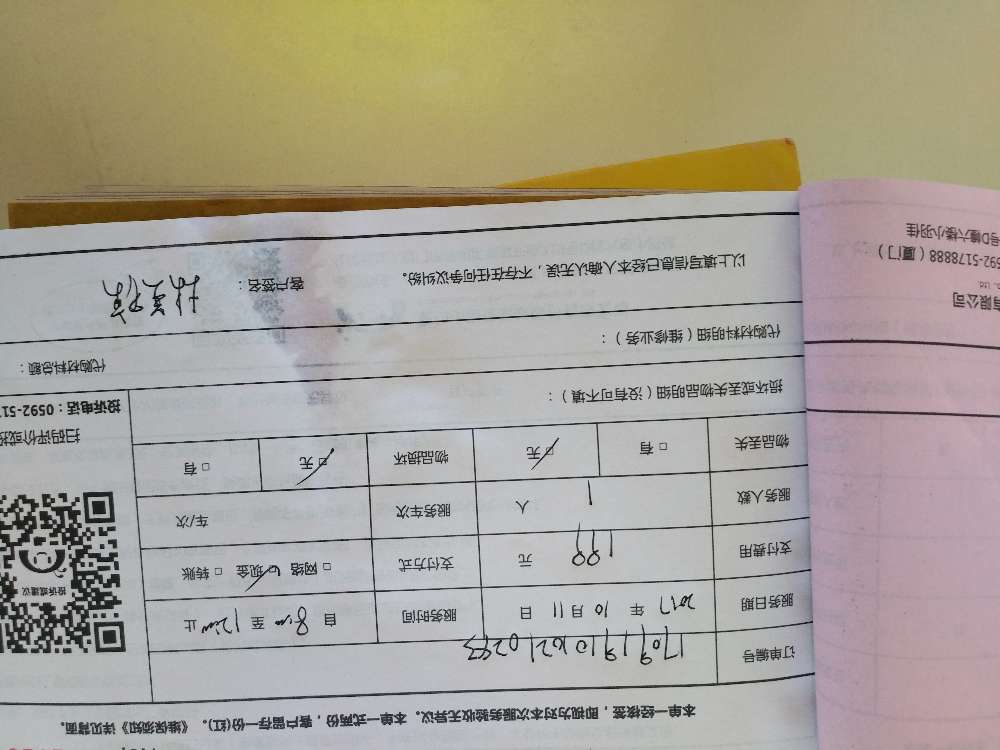 本单一经核签，即视为对本次服务验收无异议。本单一式两份，客户留存一份(红)。《维保须知》详见背面。
订单编号
服务日期 2017 年 10 月 11 日 服务时间 自 8:00 至 12:00 止
支付费用 199 元 支付方式 □ 网络 □ 现金 □ 转账
服务人数 1 人 服务车次 车/次
物品丢失 □ 有 □ 无 物品损坏 □ 无 □ 有
投诉或建议
扫码评价或投
投诉电话：0592-517
损坏或丢失物品明细（没有可不填）：
代购材料明细（维修业务）： 代购材料总额：
以上填写信息已经本人确认无误，不存在任何争议纠纷。 客户签名：
有限公司
o., Ltd.
592-5178888（厦门）：
号D幢六楼小羽佳